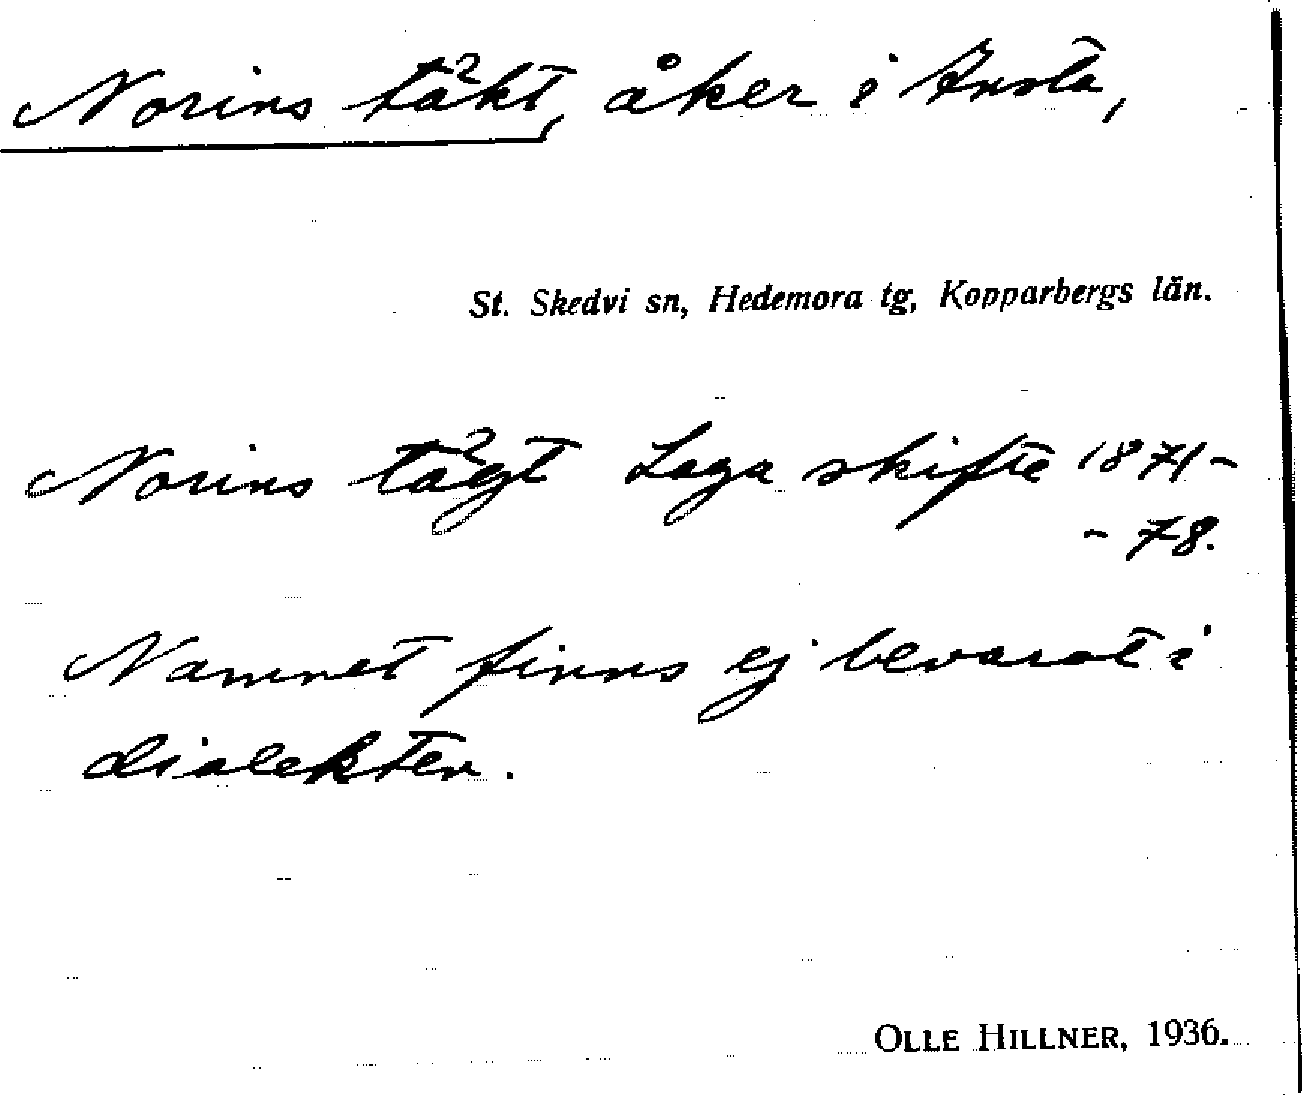 Norins täkt, åker i
St. Skedvi sn, Hedemora tg, Kopparbergs län.
Norins tägt Laga skifte 1871-
- 78.
Namnet finns ej bevarat i
dialekten.
OLLE HILLNER, 1936.